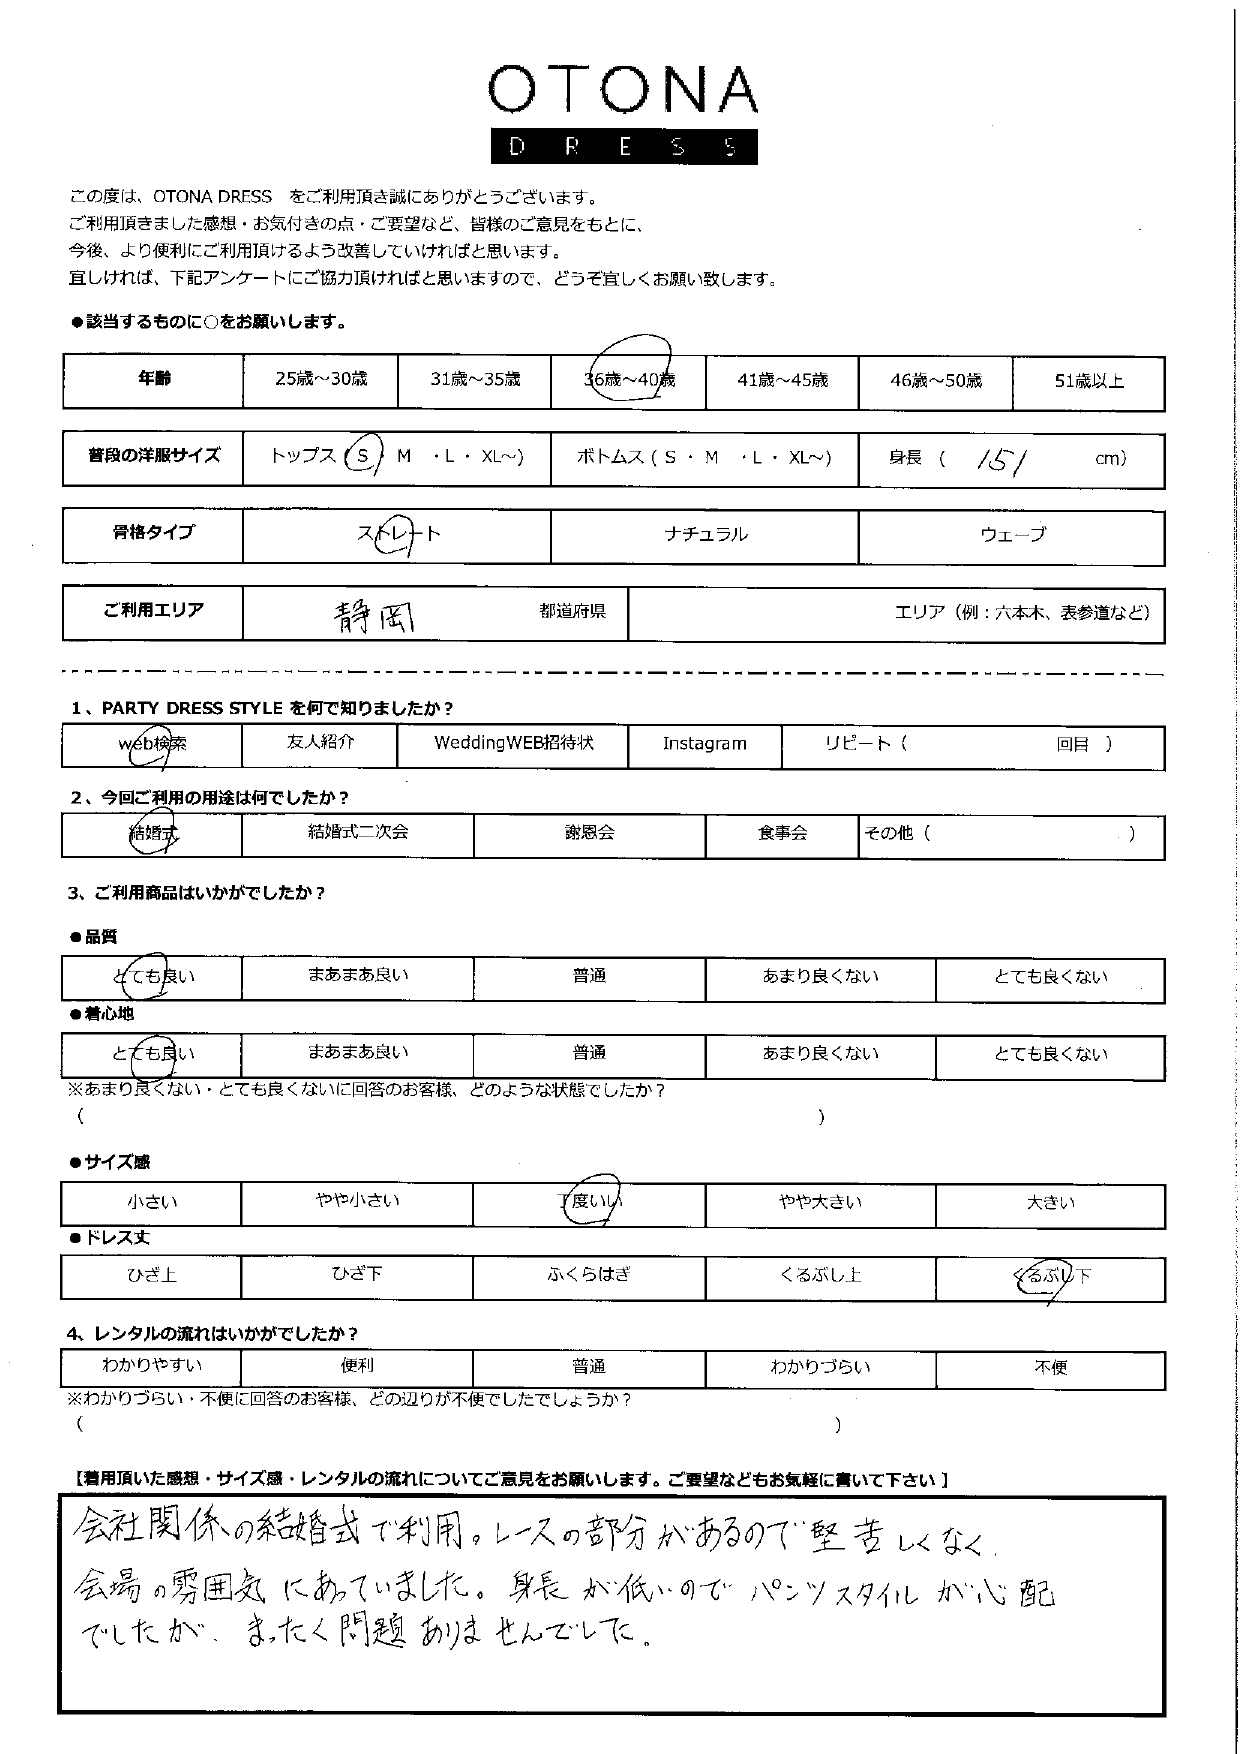 OTONA
DRESS
この度は、OTONA DRESS　をご利用頂き誠にありがとうございます。
ご利用頂きました感想・お気付きの点・ご要望など、皆様のご意見をもとに、
今後、より便利にご利用頂けるよう改善していければと思います。
宜しければ、下記アンケートにご協力頂ければと思いますので、どうぞ宜しくお願い致します。
●該当するものに○をお願いします。
年齢 25歳～30歳 31歳～35歳 36歳～40歳 41歳～45歳 46歳～50歳 51歳以上
普段の洋服サイズ トップス（S）M ・L・ XL～) ボトムス ( S ・ M ・L・ XL～) 身長 ( 151 cm)
骨格タイプ ストレート ナチュラル ウェーブ
ご利用エリア 静岡 都道府県 エリア（例：六本木、表参道など）
1、PARTY DRESS STYLE を何で知りましたか？
web検索 友人紹介 WeddingWEB招待状 Instagram リピート（ 回目 ）
2、今回ご利用の用途は何でしたか？
結婚式 結婚式二次会 謝恩会 食事会 その他（ ）
3、ご利用商品はいかがでしたか？
●品質
とても良い まあまあ良い 普通 あまり良くない とても良くない
●着心地
とても良い まあまあ良い 普通 あまり良くない とても良くない
※あまり良くない・とても良くないに回答のお客様、どのような状態でしたか？
（ ）
●サイズ感
小さい やや小さい 丁度いい やや大きい 大きい
●ドレス丈
ひざ上 ひざ下 ふくらはぎ くるぶし上 くるぶし下
4、レンタルの流れはいかがでしたか？
わかりやすい 便利 普通 わかりづらい 不便
※わかりづらい・不便に回答のお客様、どの辺りが不便でしたでしょうか？
（ ）
【着用頂いた感想・サイズ感・レンタルの流れについてご意見をお願いします。ご要望などもお気軽に書いて下さい】
会社関係の結婚式で利用。レースの部分があるので堅苦しくなく
会場の雰囲気にあっていました。身長が低いのでパンツスタイルが心配
でしたが、まったく問題ありませんでした。